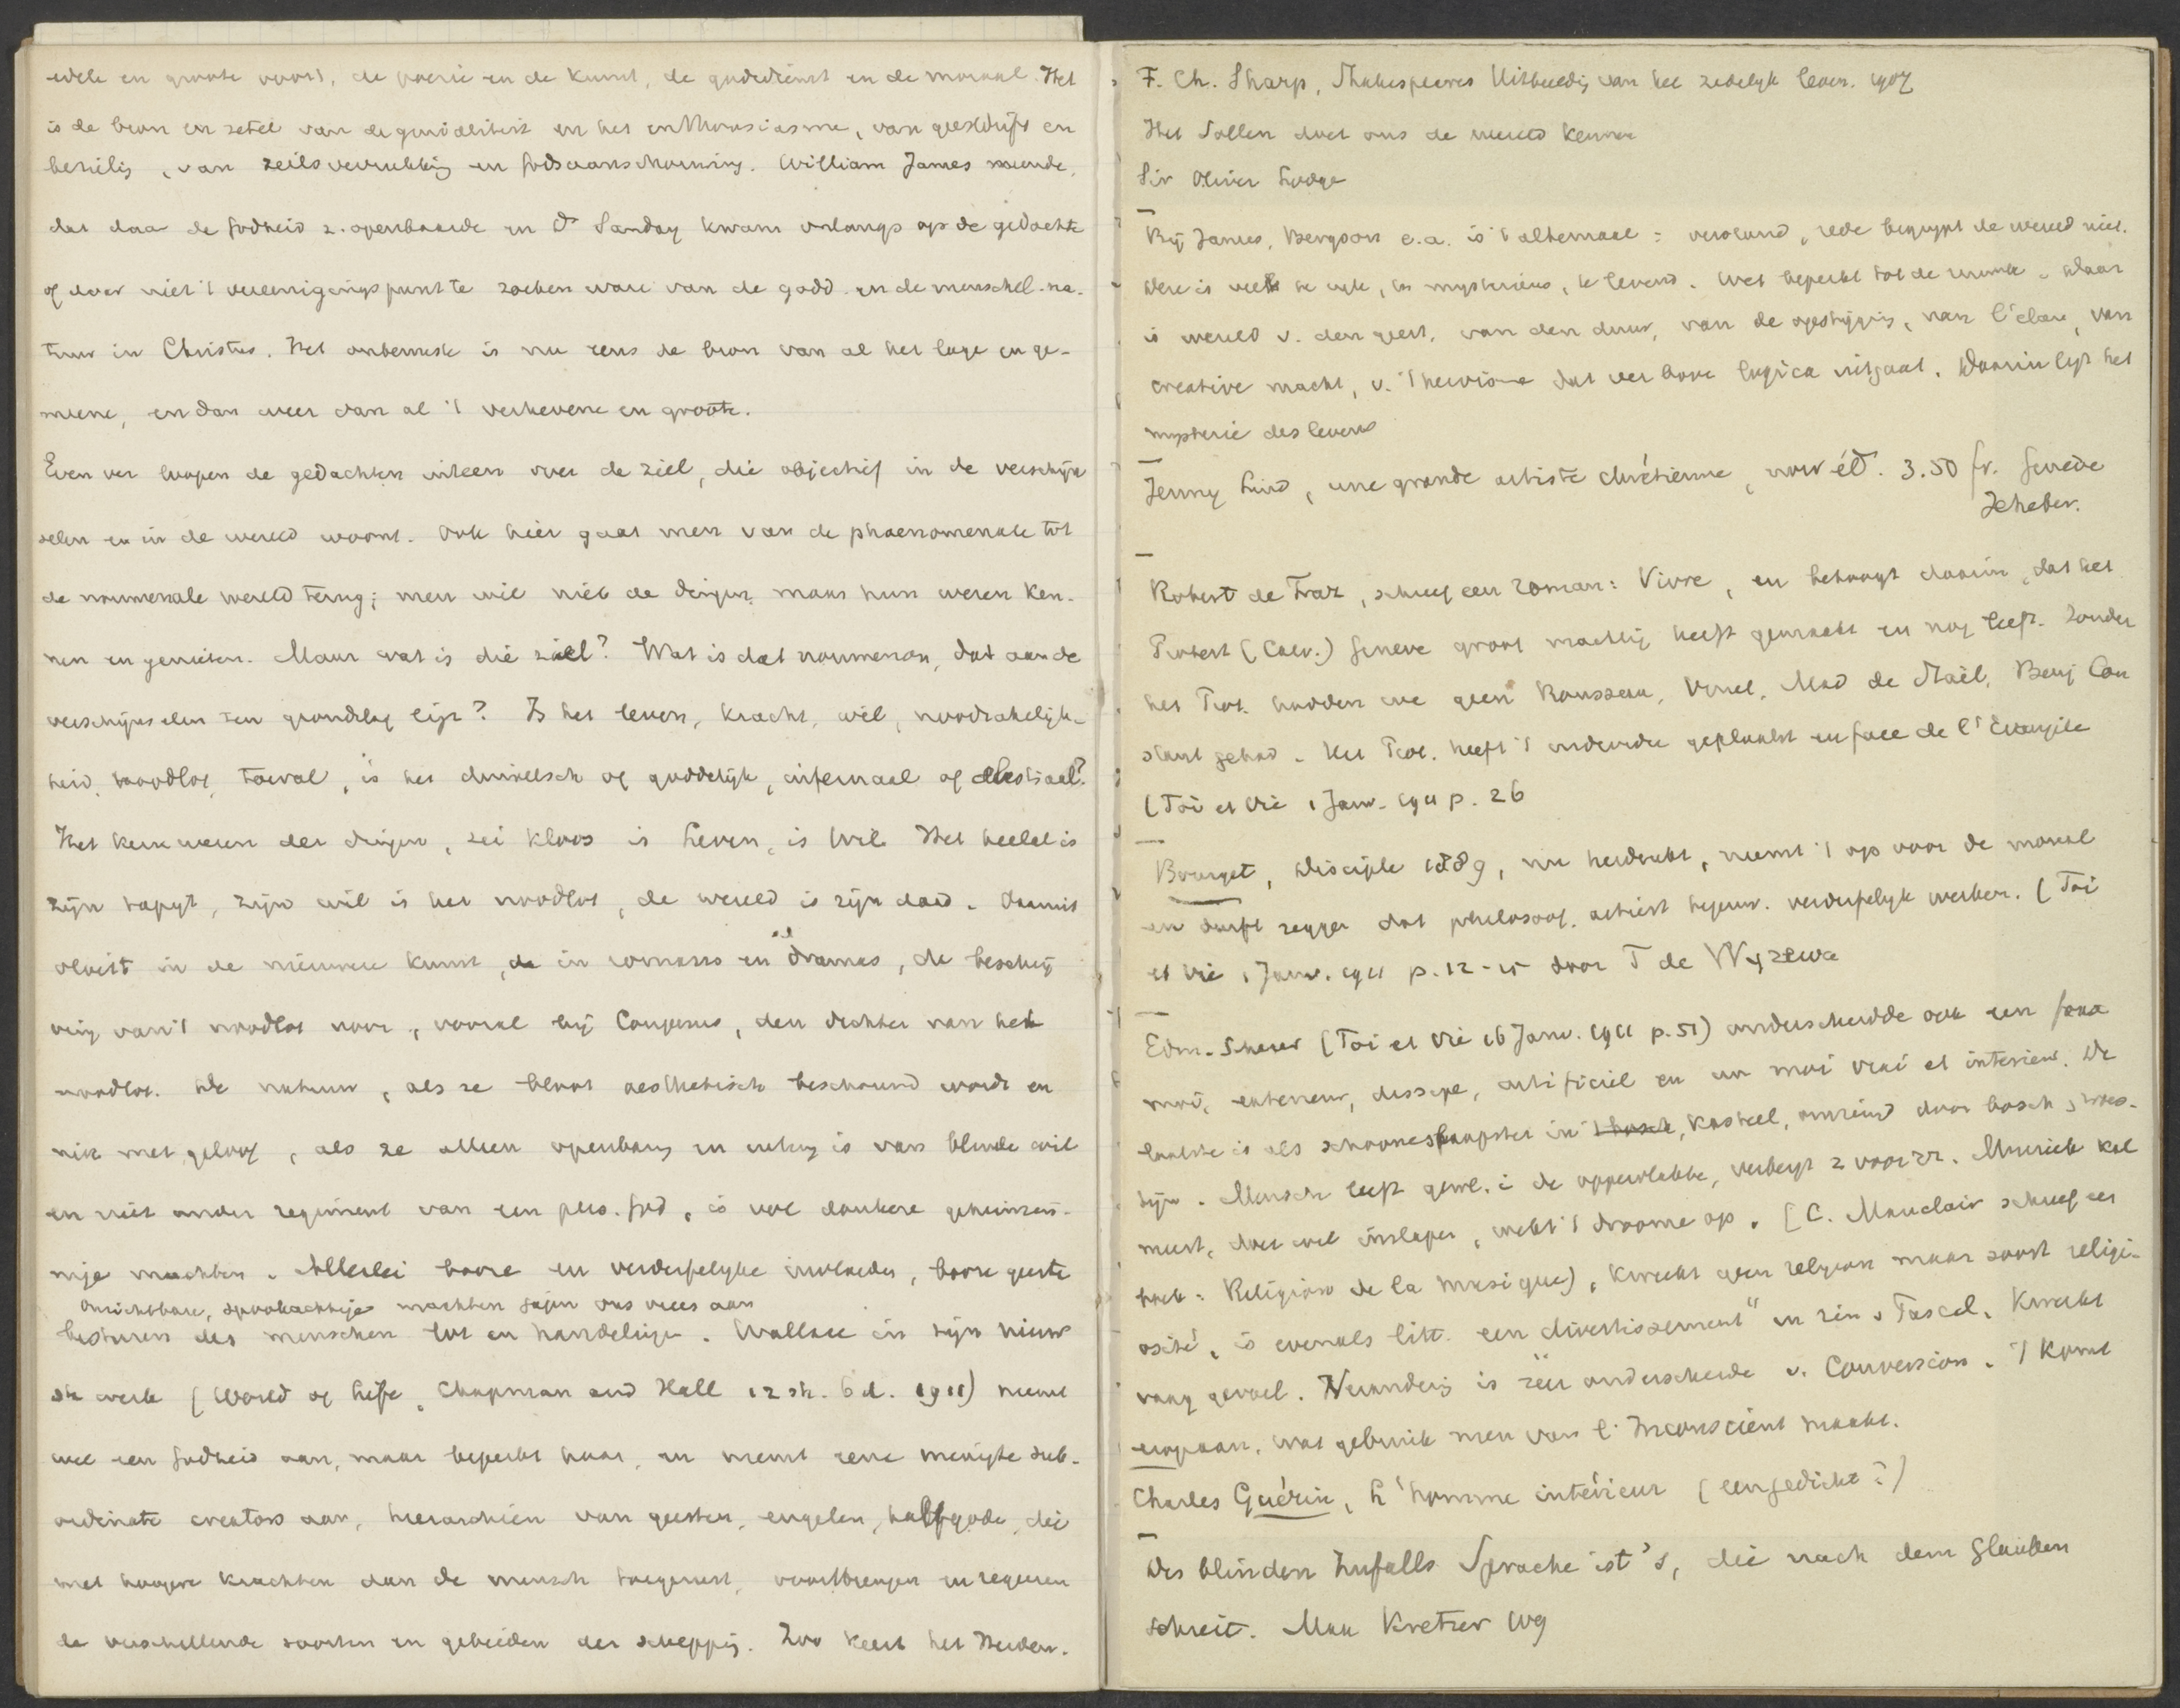 edele en groote voort, de poezie en de kunst, de godsdienst en de moraal. Het
is de bron en zetel van de genialiteit en het enthousiasme, van geestdrift en
bezielg, van zielsverrukking en Godsaanschouwing. William James meende,
dat daar de Godheid z. openbaarde en Dr Sanday kwam onlangs op de gedachte
of daar niet 't vereenigingspunt te zoeken ware van de godd. en de menschel. na-
tuur in Christus. Het onbewuste is nu eens de bron van al het lage en ge-
meene, en dan weer van al 't verhevene en groote.
Even ver loopen de gedachten uiteen over de ziel, die objectief in de verschijn
selen en in de wereld woont. Ook hier gaat men van de phaenomenale tot
de noumenale wereld terug; men wil niet de dingen maar hun wezen ken-
nen en genieten. Maar wat is die ziel? Wat is dat noumenon, dat aan de
verschijnselen ten grondslag ligt? Is het leven, kracht, wil, noodzakelijk-
heid, noodlot, toeval, is het duivelsch of goddelijk, infernaal of celestiaal?
Het kernwezen der dingen, zei Kloos is Leven, is Wil. Het heelal is
zijn tapijt, zijn wil is het noodlot, de wereld is zijn daad. Daaruit
vloeit in de nieuwere kunst, in romans en drama's, de beschrij
ving van 't noodlot voor, vooral bij Couperus, den dichter van het
noodlot. De natuur, als ze bloot aesthetisch beschouwd wordt en
niet met geloof, als ze alleen openbarg en uiting is van blinde wil
en niet onder regiment van een pers. God, is vol donkere geheimzin-
nige machten. Allerlei booze en verderfelijke invloeden, booze geesten
onzichtbare, spookachtige machten jagen ons vrees aan
besturen des menschen lot en handelingen. Wallace in zijn nieuw
ste werk (World of Life, Chapman and Hall 12 sh. 6 d. 1911) neemt
wel een Godheid aan, maar beperkt haar, en neemt eene menigte sub-
ordinate creators aan, hierarchieën van geesten, engelen, halfgoden, die
met hoogere krachten dan de mensch toegerust, voortbrengen en regeeren
de verschillende soorten en gebieden der schepping. Zoo keert het Heiden-
F. Ch. Sharp, Shakespeares Uitbeeldg van het zedelijk leven. 1907
Het Sollen doet ons de wereld kennen
Sir Oliver Lodge
Bij James, Bergson e.a. is 't altemaal: verstand, rede begrijpt de wereld niet.
Deze is veel te rijk, te mysterieus, te levend. Wet beperkt tot de ruimte. Maar
is wereld v. den geest, van den duur, van de opstijging, van l'élan, van
creative macht, v. 't heroisme dat ver boven logica uitgaat. Daarin ligt het
mysterie des levens
Jenny Lind, une grande artiste chrétienne, nouv éd. 3.50 fr. Genève
Jeheber.
Robert de Traz, schreef een roman: Vivre, en betoogt daarin, dat het
Protest (Calv.) Geneve groot machtig heeft gemaakt en nog leeft. Zonder
het Prot. hadden we geen Rousseau, Vinet, Mad de Staël, Benj Con
stant gehad. Het Prot. heeft 't individu geplaatst en face de l'Evangile
(Foi et Vie 1 Janv. 1911 p. 26
Bourget, Disciple 1889, nu herdrukt, neemt 't op voor de moraal
en durft zeggen dat philosoof. artiest verderfelijk werken. (Foi
et Vie 1 Janv. 1911 p. 12-15 door T de Wyzewa
Edm. Scherer (Foi et Vie 16 Janv. 1911 p. 51) onderscheidde ook een faux
moi, exterieur, artificiel en un moi vrai et interieur. De
laatste is als schoone slaapster in kasteel, omringd door bosch, woes-
tijn. Mensch leeft gewl. i de oppervlakte, verbergt z voor zz. Muziek
meest, doet wel inslapen, wekt 't droome op. (C. Mauclair schreef een
boek: Religion de la musique), kweekt geen religion maar soort religi-
osité, is evenals litt. een "divertissement" in zin v Pascal, Kweekt
vaag gevoel. Veranderg is zeer onderscheide v. Conversion. 't Komt
erop aan, wat gebruik men van l'Inconscient maakt.
Charles Guérin, L'homme intérieur (een gedicht?)
Des blinden Zufalls Sprache ist's, die nach dem Glauben
schreit. Max Kretzer